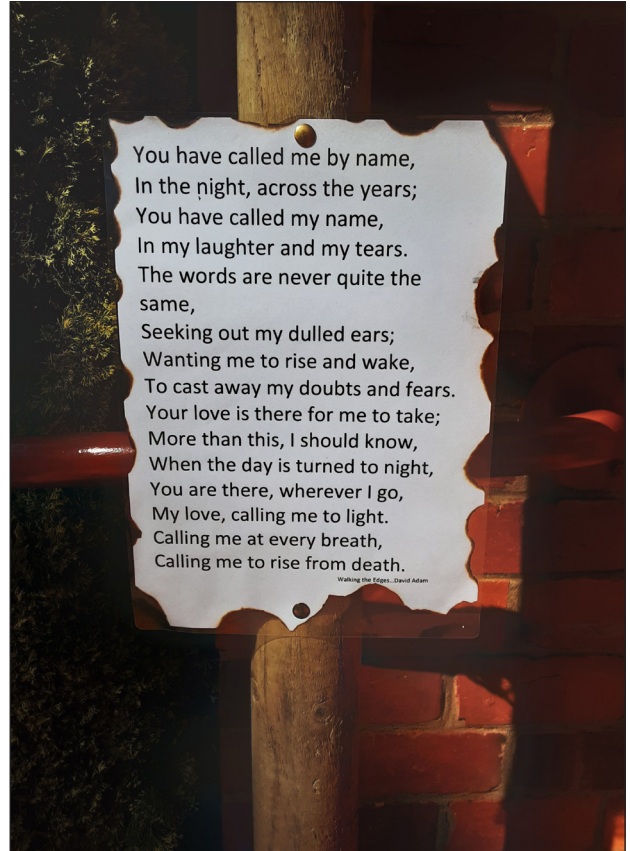 You have called me by name,
In the night, across the years;
You have called my name,
In my laughter and my tears.
The words are never quite the
same,
Seeking out my dulled ears;
Wanting me to rise and wake,
To cast away my doubts and fears.
Your love is there for me to take;
More than this, I should know,
When the day is turned to night,
You are there, wherever I go,
My love, calling me to light.
Calling me at every breath,
Calling me to rise from death.
Walking the Edges...David Adam